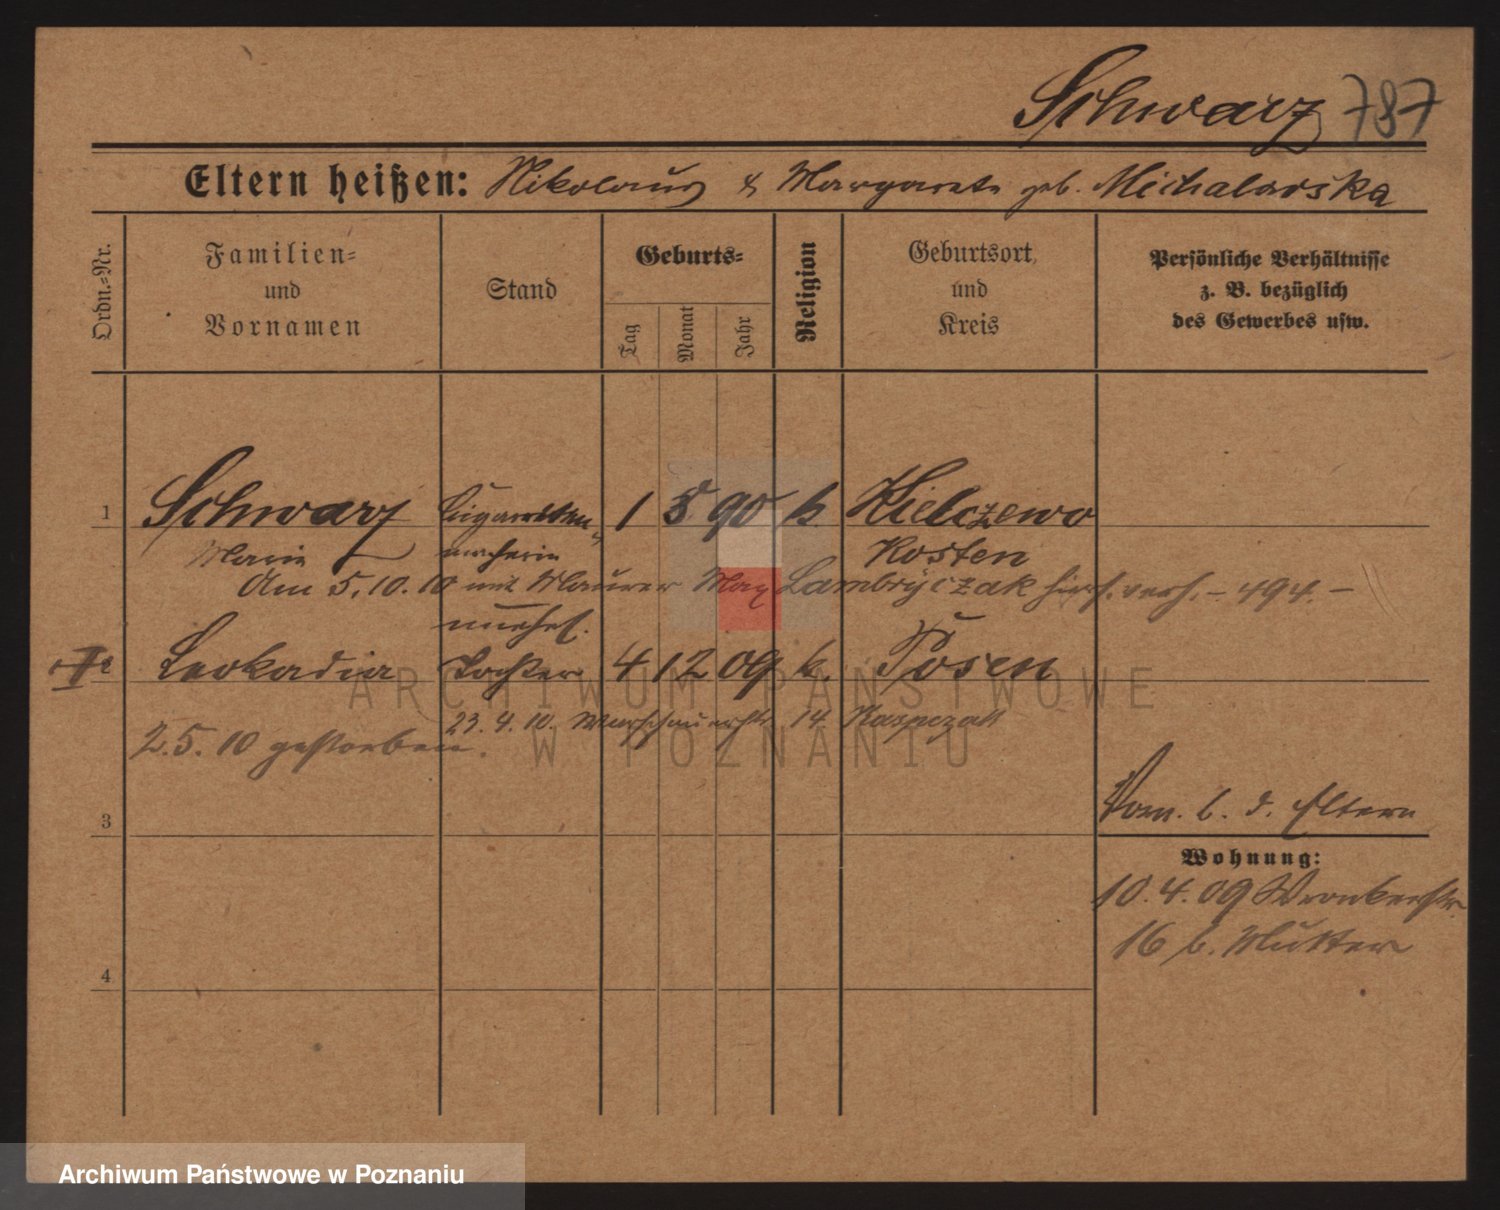 Schwarz 787
Eltern heißen: Nikolaus & Margarete geb. Michalarska
Ordn.=Nr.
Familien=
und
Vornamen
Stand
Geburts=
Tag
Monat
Jahr
Religion
Geburtsort
und
Kreis
Persönliche Verhältnisse
z. B. bezüglich
des Gewerbes usw.
1 Schwarz Cigaretten- 1 5 90 k. Kielczewo
Marie macherin Kosten
Am 5.10.10 mit Maurer Max Lambryczak hier verh. – 494. –
unehel.
2 Leokadia Tochter 4 12 09 k. Posen
23.4.10. Warschauerstr. 14. Kaspczak
2.5.10 gestorben.
3
Vom. b. d. Eltern
Wohnung:
10.4.09 Wronkerstr.
16 b. Mutter
4
ARCHIWUM PAŃSTWOWE
W POZNANIU
Archiwum Państwowe w Poznaniu